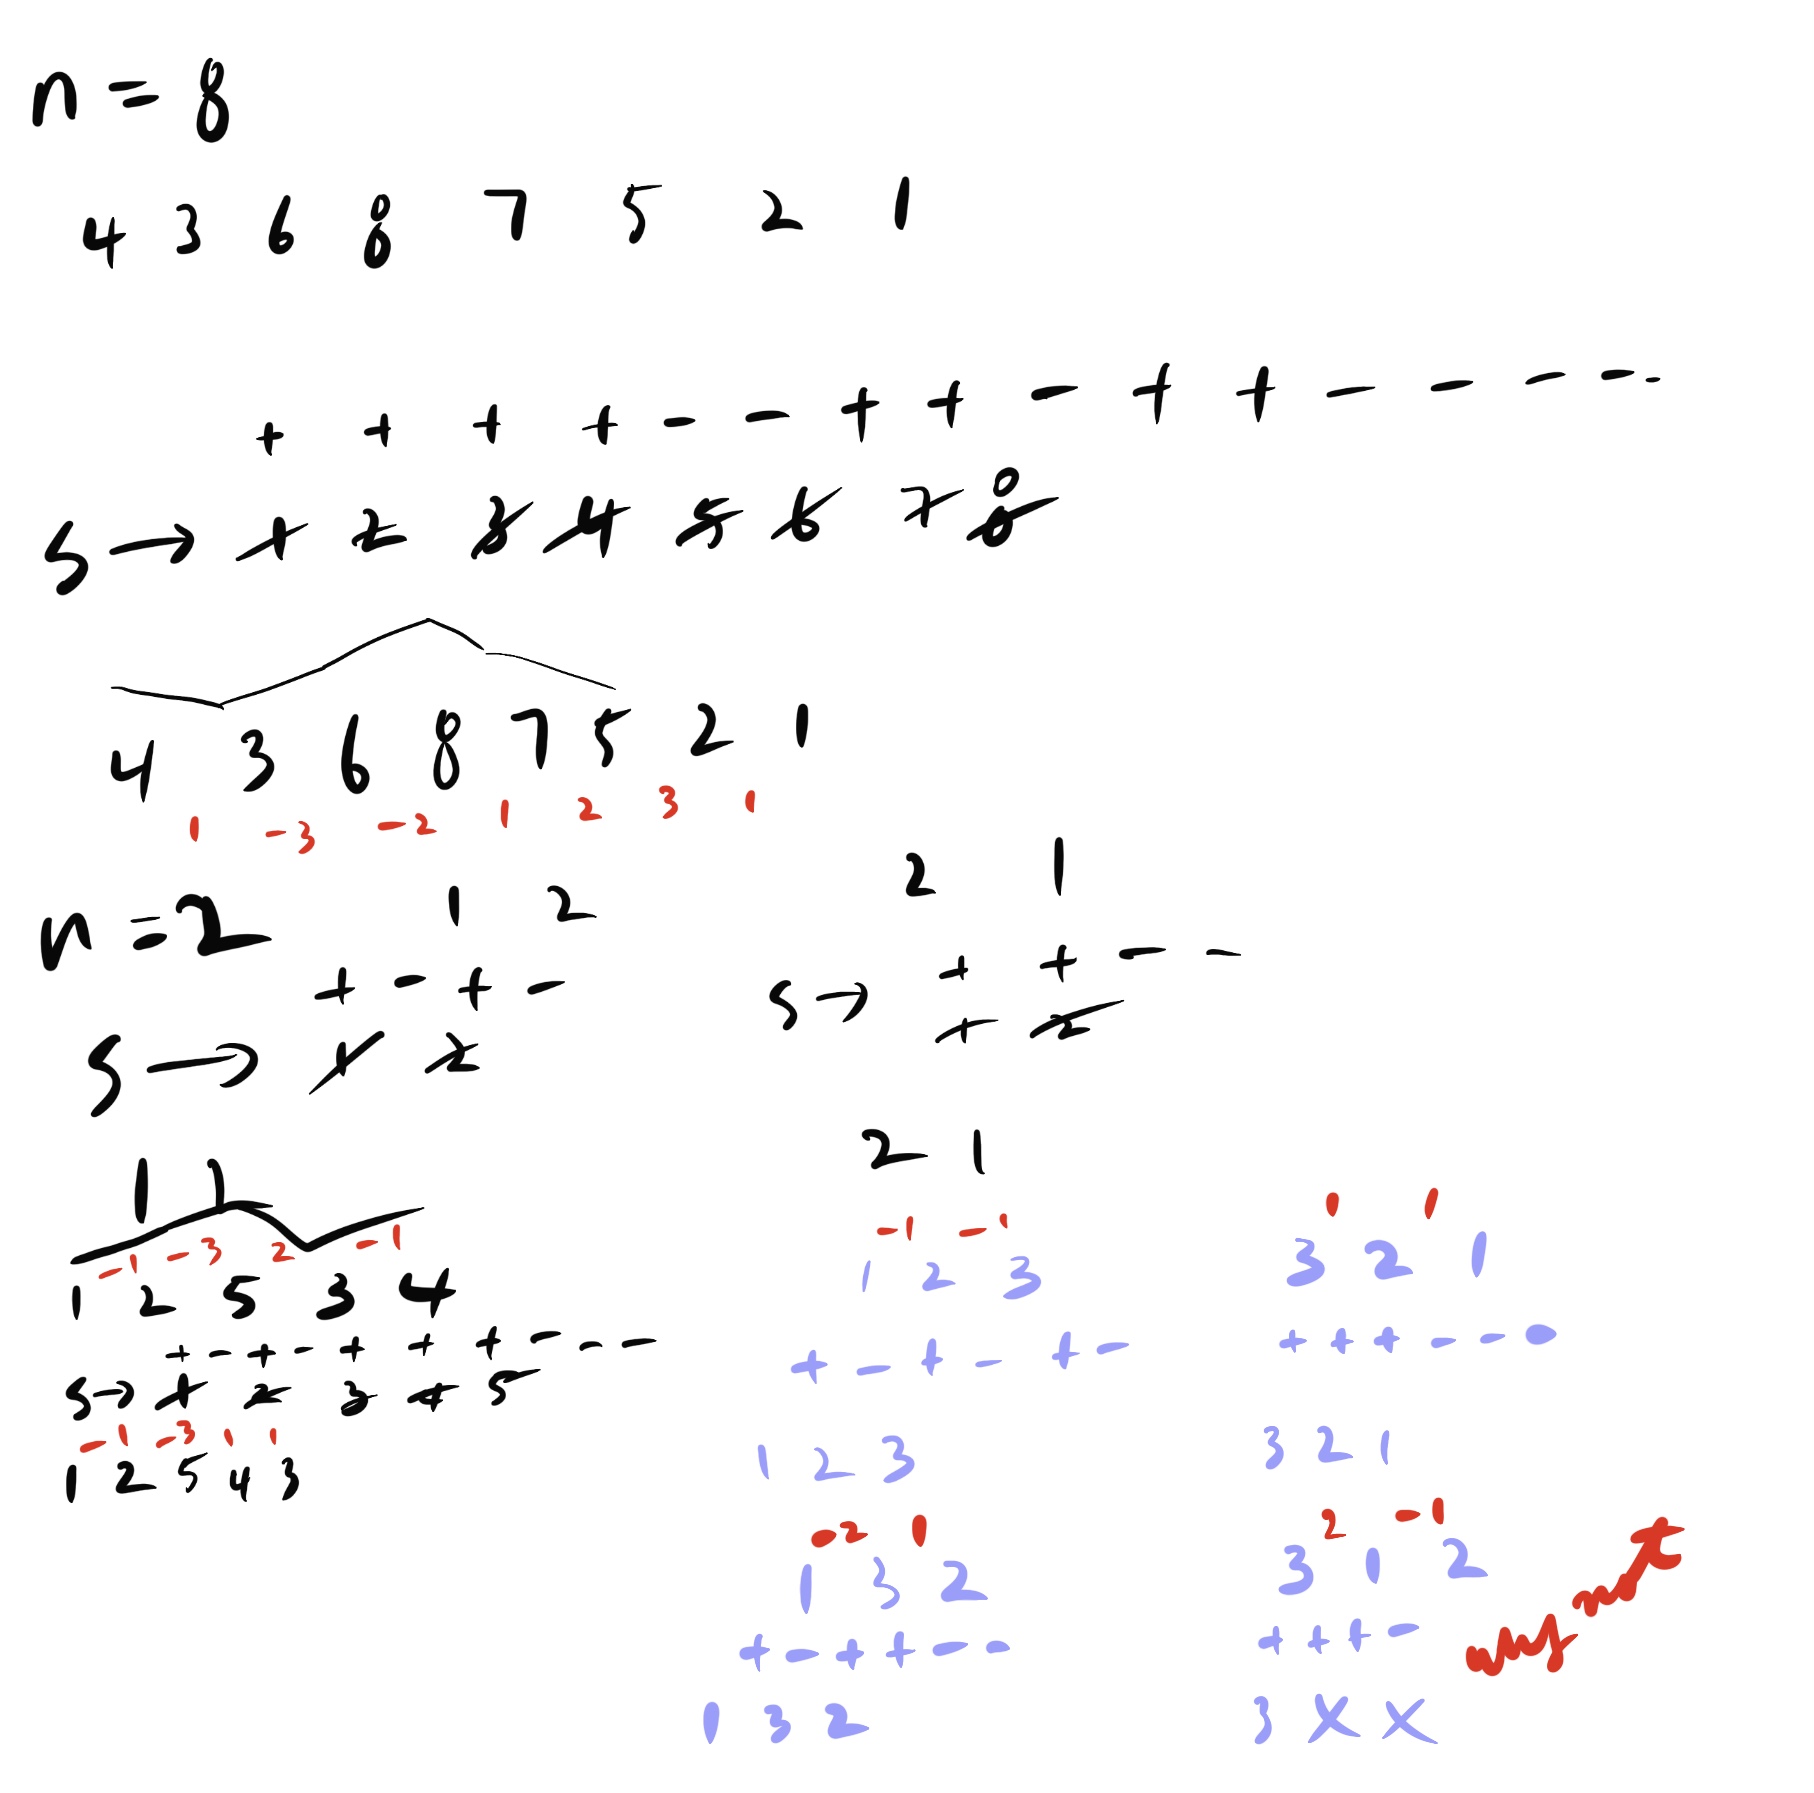 n = 8
4 3 6 8 7 5 2 1
+ + + + - - + + - + + - - - - -
S → 1 2 3 4 5 6 7 8
4 3 6 8 7 5 2 1
1 -3 -2 1 2 3 1
n = 2
1 2
+ - + -
S → 1 2
2 1
+ + - -
S → 1 2
1 1
-1 -3 2 -1
1 2 5 3 4
+ - + - + + + - - -
S → 1 2 3 4 5
-1 -3 1 1
1 2 5 4 3
2 1
-1 -1
1 2 3
+ - + - + -
1 2 3
-2 1
1 3 2
+ - + + - -
1 3 2
1 1
3 2 1
+ + + - - -
3 2 1
2 -1
3 1 2
+ + + -
3 X X
why not